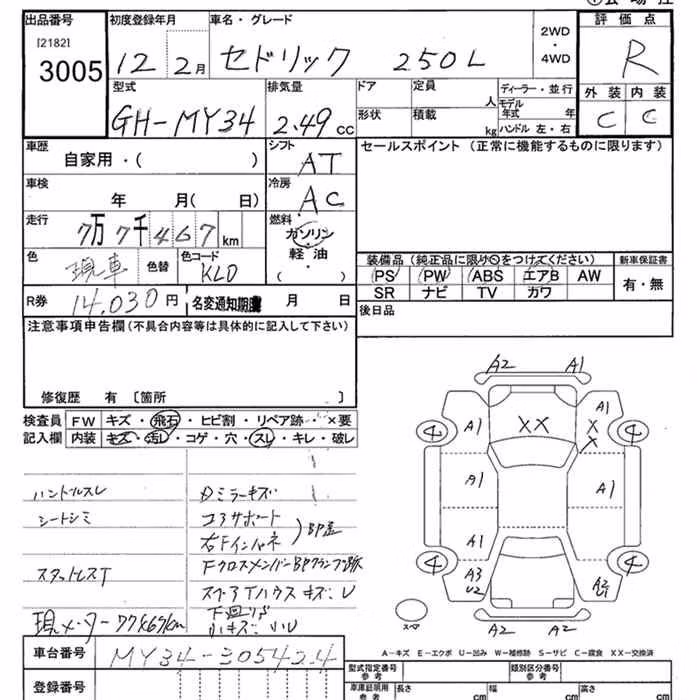 出品番号 初度登録年月 車名・グレード 2WD・4WD 評価点
[2182]
3005 12 2月 セドリック 250L R
型式 排気量 ドア 定員 人 ディーラー・並行 外装 内装
GH-MY34 2.49cc 形状 積載 kg モデル年式 年 ハンドル 左・右 C C
車歴 自家用・( ) シフト AT セールスポイント (正常に機能するものに限ります)
車検 年 月( 日) 冷房 AC
走行 7万7千467km 燃料 ガソリン 軽油 ( )
色 現車 色替 色コード KLO
装備品 (純正品に限り○をつけてください) 新車保証書
PS PW ABS エアB AW 有・無
SR ナビ TV カワ
R券 14,030円 名変通知期限 月 日 後日品
注意事項申告欄(不具合内容等は具体的に記入して下さい)
修復歴 有 〔箇所 〕
検査員 FW キズ・飛石・ヒビ割・リペア跡・×要
記入欄 内装 キズ・汚レ・コゲ・穴・スレ・キレ・破レ
A2 A1
A1 XX A1 X X
4 4
A1 A1
A1
4 4
A3 U2
A2 A2
スペア
ハンドルスレ Dミラーキズ
シートシミ コアサポート
右Fインパネ BP歪
スタットレスT Fクロスメンバー
スペアTハウス キズ
下廻り
現メーター 77467km
A-キズ E-エクボ U-凹み W-補修跡 S-サビ C-腐食 XX-交換済
車台番号 MY34-305424
登録番号
型式指定番号 参考 類別区分番号 参考
車庫証明用 参考 長さ cm 幅 cm 高さ cm